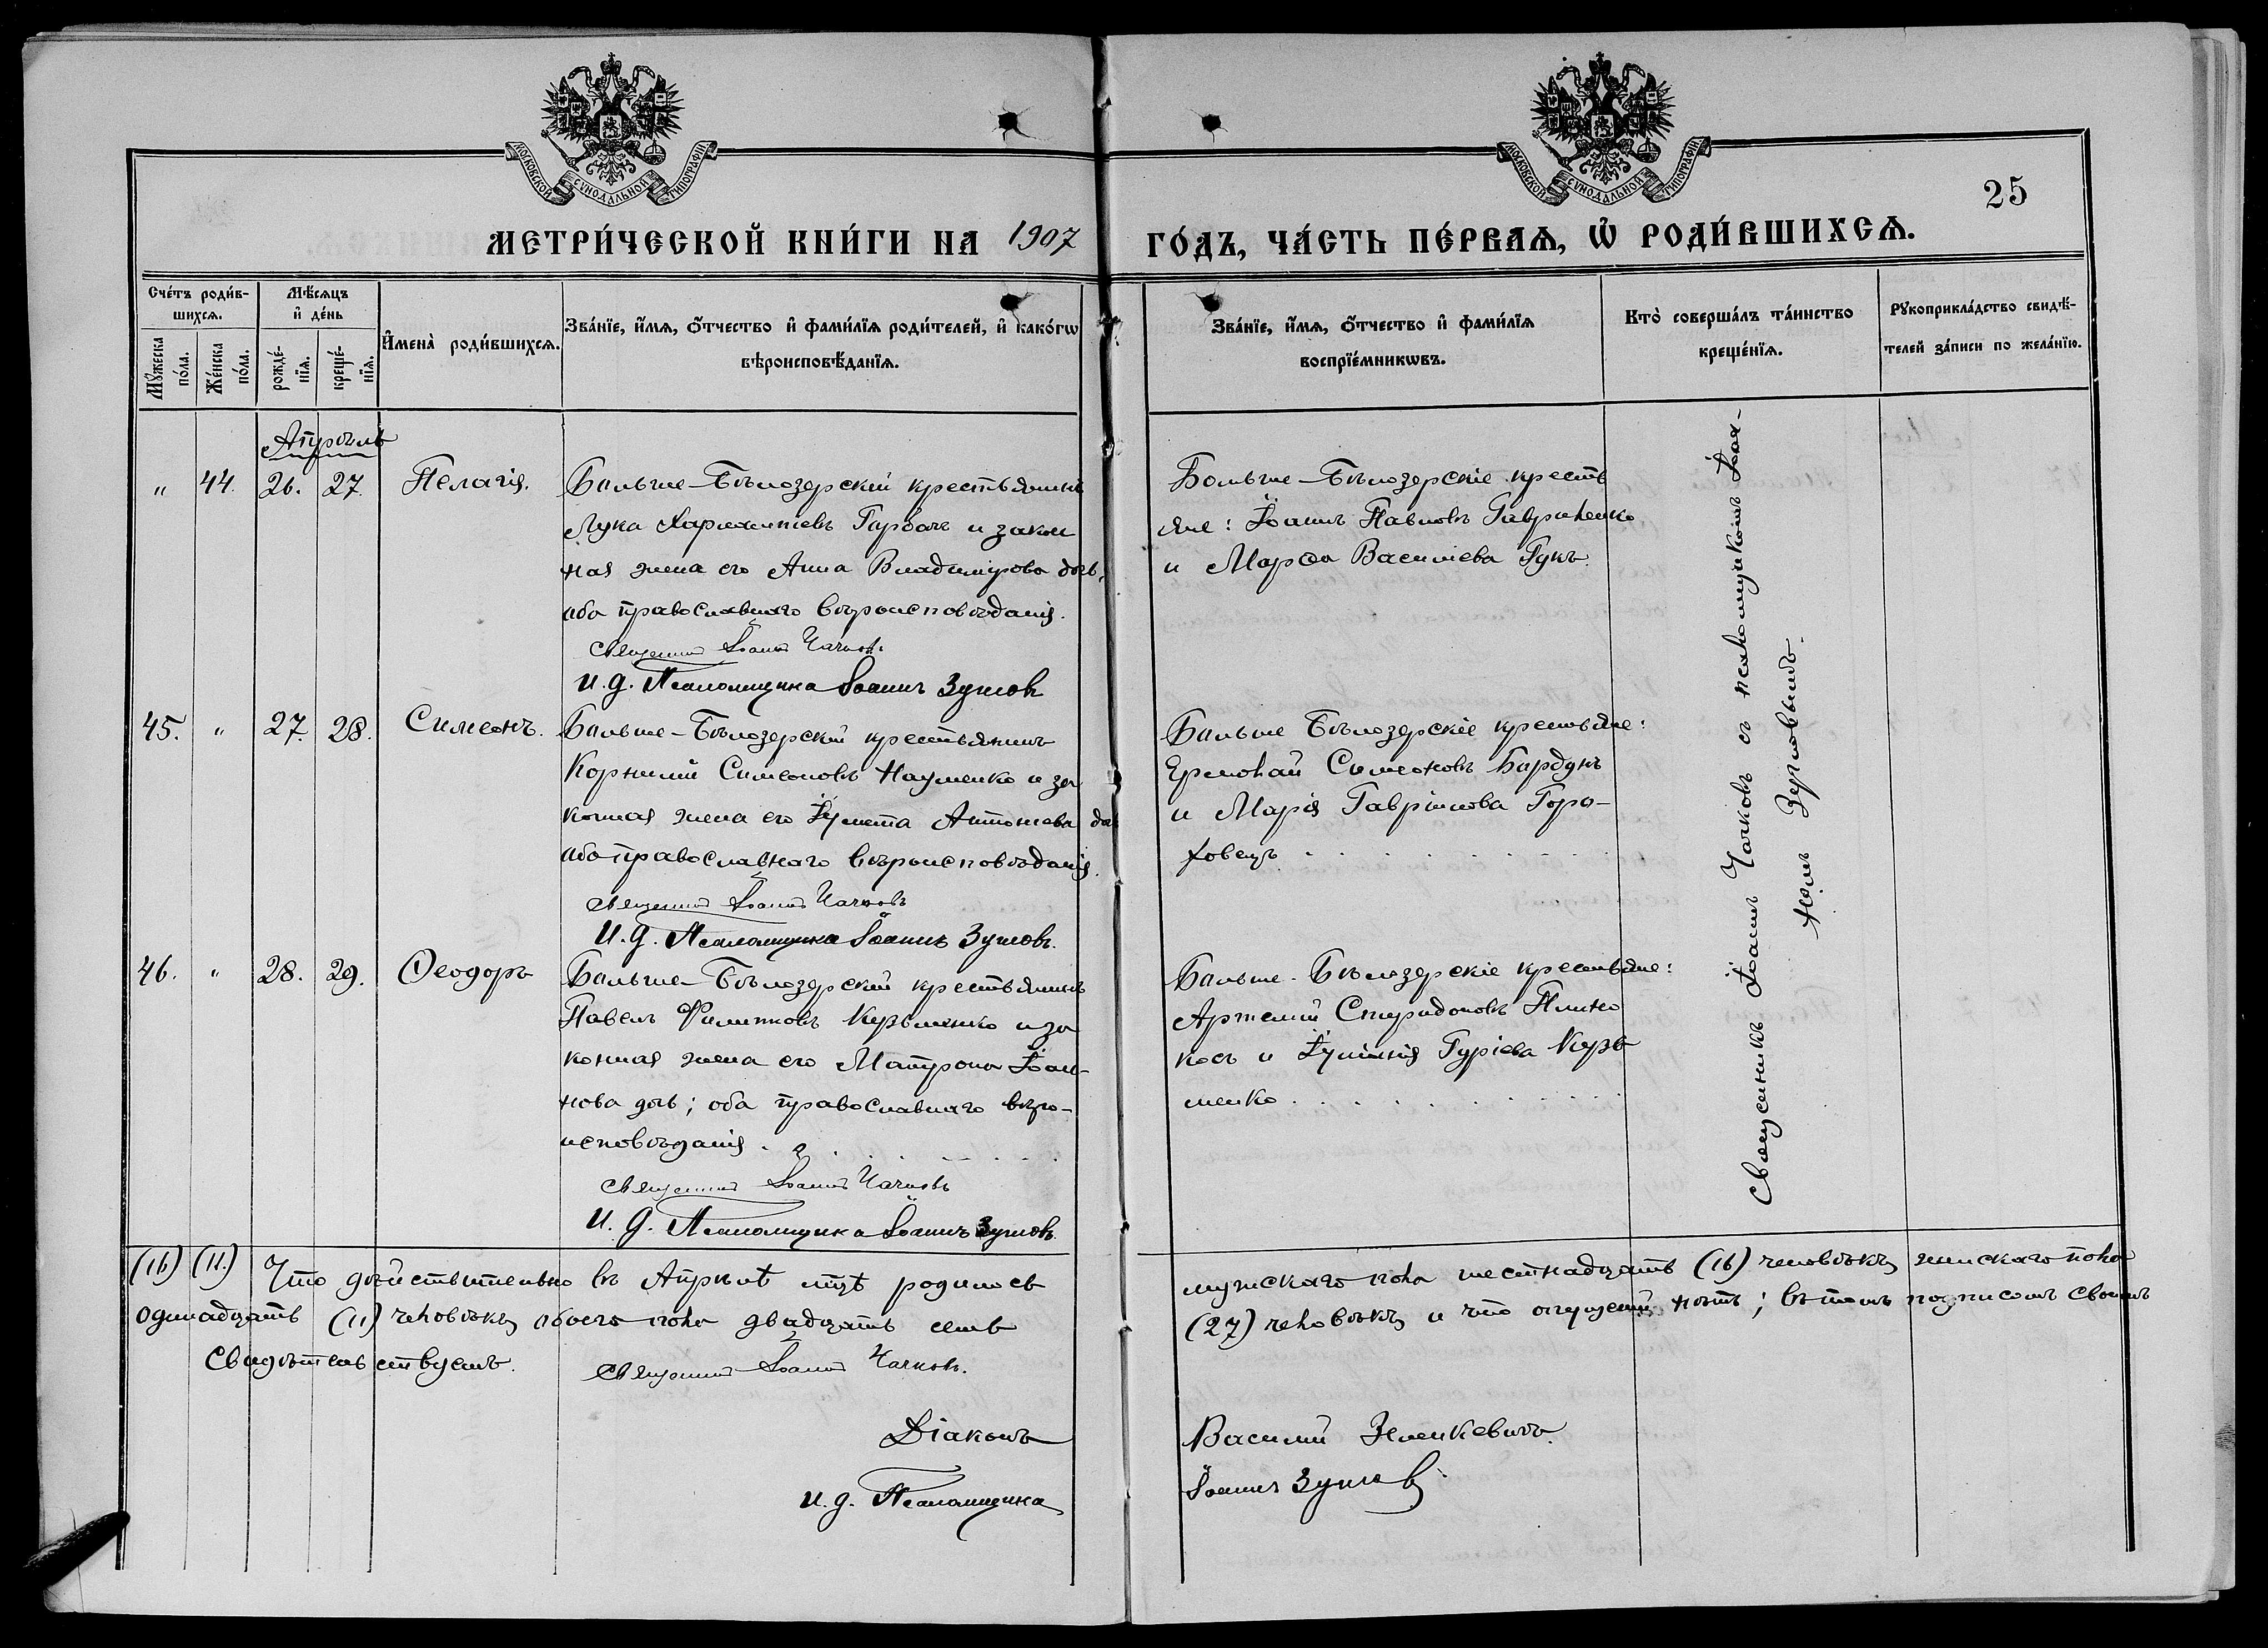 МОСКОВСКОЙ СѴНОДАЛЬНОЙ ТИПОГРАФІИ
МОСКОВСКОЙ СѴНОДАЛЬНОЙ ТИПОГРАФІИ
25
МЕТРИ́ЧЕСКОЙ КНИ́ГИ НА 1907 ГО́ДЪ, ЧА́СТЬ ПЕ́РВАѦ, Ѡ РОДИ́ВШИХСѦ.
Сче́тъ роди́в-
шихсѧ.
Мꙋ́жеска по́ла.
Же́нска по́ла.
Мѣ́сѧцъ
и҆ де́нь
рожде́-
нїѧ.
креще́-
нїѧ.
И҆мена̀ роди́вшихсѧ.
Зва́нїе, и҆́мѧ, ѻ҆́тчество и҆ фами́лїѧ роди́телей, и҆ како́гѡ
вѣроисповѣ́данїѧ.
Зва́нїе, и҆́мѧ, ѻ҆́тчество и҆ фами́лїѧ
воспрїе́мникѡвъ.
Кто̀ соверша́лъ та́инство
креще́нїѧ.
Рꙋкоприкла́дство свидѣ́-
телей за́писи по жела́нїю.
Апрѣль
" 44. 26. 27. Пелагія.
Больше-Бѣлозерскій крестьянинъ
Лука Харлампіевъ Горбачъ и закон
ная жена его Анна Владимірова дочь,
оба православнаго вѣроисповѣданія.
Священникъ Іоаннъ Чачковъ.
И. д. Псаломщика Іоаннъ Зумовъ
Больше-Бѣлозерскіе кресть
яне: Іоаннъ Павловъ Гавриленко
и Марѳа Василіева Гукъ.
45. " 27. 28. Симеонъ.
Больше-Бѣлозерскій крестьянинъ
Корнилій Симеоновъ Науменко и за
конная жена его Іулитта Антоніева доч
оба православнаго вѣроисповѣданія.
Священникъ Іоаннъ Чачковъ
И. д. Псаломщика Іоаннъ Зумовъ.
Больше Бѣлозерскіе крестьяне:
Ермолай Симеоновъ Бардукъ
и Марія Гавріилова Горо-
ховецъ
46. " 28. 29. Ѳеодоръ
Больше-Бѣлозерскій крестьянинъ
Павелъ Филипповъ Кузьменко и за
конная жена его Матрона Іоан-
нова дочь; оба православнаго вѣро-
исповѣданія.
Священникъ Іоаннъ Чачковъ
И. д. Псаломщика Іоаннъ Зумовъ.
Больше-Бѣлозерскіе крестьяне:
Артемій Спиридоновъ Плихо
Іуліанія Гуріева Кузь
менко
Священникъ Іоаннъ Чачковъ съ псаломщикомъ Іоан-
номъ Зумовымъ.
(16) (11.) Что дѣйствительно въ Апрѣлѣ мцѣ родилось мужскаго пола шестнадцать (16) человѣкъ женскаго пола
одинадцать (11) человѣкъ обоего пола двадцать семь (27) человѣкъ и что опущеній нѣтъ; въ томъ подписомъ своимъ
свидѣтельствуемъ.
Священникъ Іоаннъ Чачковъ.
Діаконъ Василій Зелинкевичъ.
и. д. Псаломщика Іоаннъ Зумовъ